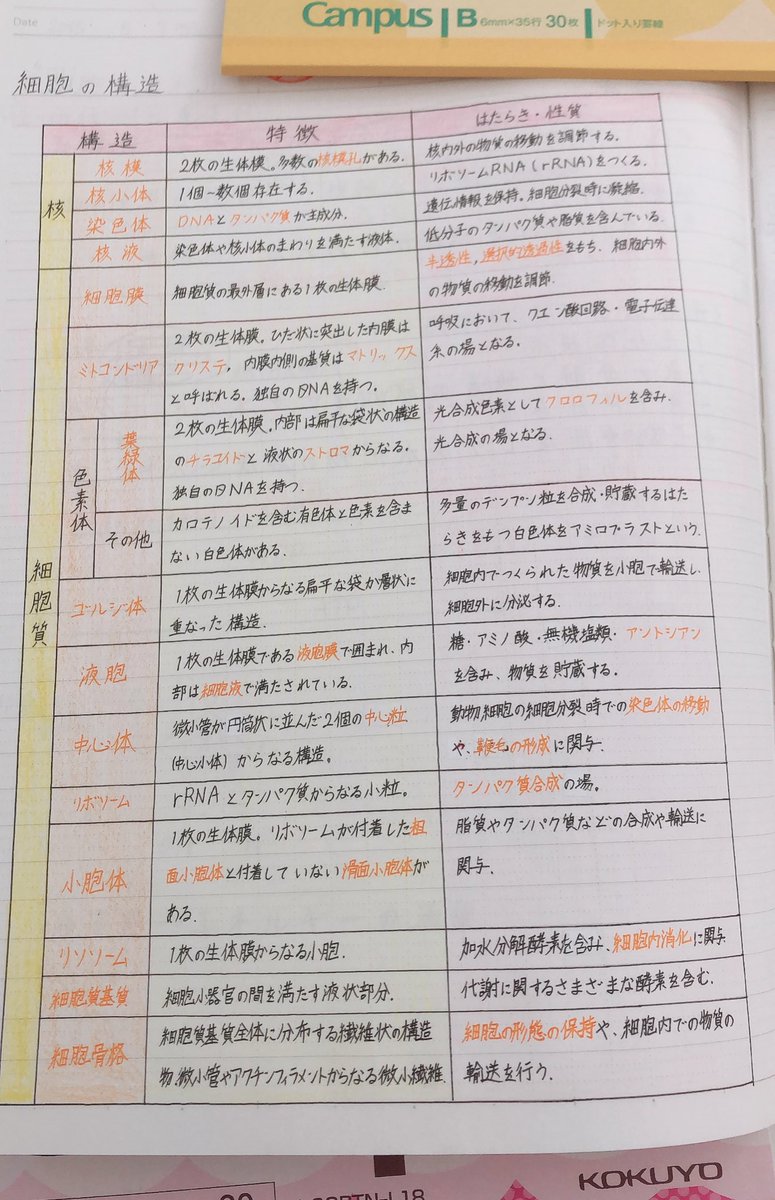 Campus B 6mm×35行 30枚 ドット入り罫線
Date
細胞の構造
構造 特徴 はたらき・性質
核
核模 2枚の生体模。多数の核模孔がある. 核内外の物質の移動を調節する.
核小体 1個~数個存在する. リボソームRNA(rRNA)をつくる.
染色体 DNAとタンパク質が主成分. 遺伝情報を保持。細胞分裂時に凝縮.
核液 染色体や核小体のまわりを満たす液体. 低分子のタンパク質や脂質を含んでいる.
細胞質
細胞膜 細胞質の最外層にある1枚の生体膜. 半透性,選択的透過性をもち、細胞内外
の物質の移動を調節.
ミトコンドリア 2枚の生体膜。ひだ状に突出した内膜は 呼吸において、クエン酸回路・電子伝達
クリステ, 内膜内側の基質はマトリックス 系の場となる.
と呼ばれる. 独自のDNAを持つ.
色素体
葉緑体 2枚の生体膜。内部は扁平な袋状の構造 光合成色素としてクロロフィルを含み、
のチラコイドと液状のストロマからなる. 光合成の場となる.
独自のDNAを持つ.
その他 カロテノイドを含む有色体と色素を含ま 多量のデンプン粒を合成・貯蔵するはた
ない白色体がある. らきをもつ白色体をアミロプラストという.
ゴルジ体 1枚の生体膜からなる扁平な袋が層状に 細胞内でつくられた物質を小胞で輸送し、
重なった構造. 細胞外に分泌する.
液胞 1枚の生体膜である液胞膜で囲まれ、内 糖・アミノ酸・無機塩類・アントシアン
部は細胞液で満たされている. を含み、物質を貯蔵する.
中心体 微小管が円筒状に並んだ2個の中心粒 動物細胞の細胞分裂時での染色体の移動
(中心小体) からなる構造。 や、鞭毛の形成に関与.
リボソーム rRNAとタンパク質からなる小粒。 タンパク質合成の場。
小胞体 1枚の生体膜。リボソームが付着した粗 脂質やタンパク質などの合成や輸送に
面小胞体と付着していない滑面小胞体が 関与.
ある.
リソソーム 1枚の生体膜からなる小胞. 加水分解酵素を含み、細胞内消化に関与
細胞質基質 細胞小器官の間を満たす液状部分. 代謝に関するさまざまな酵素を含む.
細胞骨格 細胞質基質全体に分布する繊維状の構造 細胞の形態の保持や、細胞内での物質の
物.微小管やアクチンフィラメントからなる微小繊維. 輸送を行う.
KOKUYO